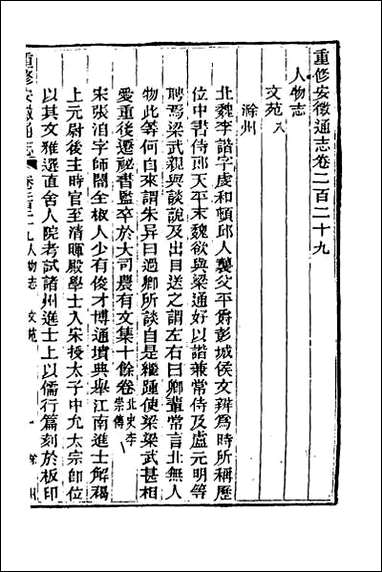 重修安徽通志卷二百二十九
人物志
文苑八
滁州
北魏李諧字虔和頓邱人襲父平爵彭城侯文辨為時所稱歷
位中書侍郎天平末魏欲與梁通好以諧兼常侍及盧元明等
聘焉梁武親與談說及出目送之謂左右曰卿輩常言北無人
物此等何自來謂朱异曰過卿所談自是繼踵使梁梁武甚相
愛重後遷祕書監卒於大司農有文集十餘卷北史李崇傳
宋張洎字師闇全椒人少有俊才博通墳典舉江南進士解褐
上元尉後主時官至清暉殿學士入宋授太子中允太宗即位
以其文雅選直舍人院考試諸州進士上以儒行篇刻於板印
重修安徽通志
卷二百二十九人物志 文苑 一 滁州